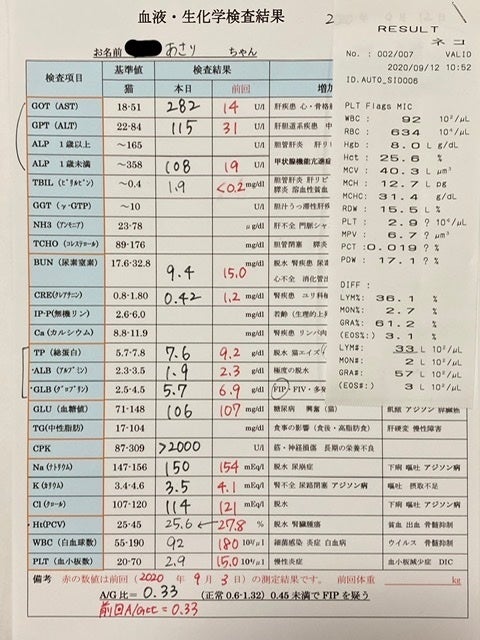 血液・生化学検査結果
お名前 あさり ちゃん
検査項目 基準値 猫 検査結果 本日 前回
GOT (AST) 18-51 282 14 U/l 肝疾患 心・骨格
GPT (ALT) 22-84 115 31 U/l 肝胆道系疾患
ALP 1歳以上 ~165 U/l 胆管肝炎
ALP 1歳未満 ~358 108 19 U/l 甲状腺機能亢進症
TBIL (ビリルビン) ~0.4 1.9 <0.2 mg/dl 胆管肝炎 肝リピ
膵炎 溶血性貧血
GGT (γ・GTP) ~10 U/l 胆汁うっ滞性肝疾
NH3 (アンモニア) 23-78 μg/dl 肝不全 門脈シャ
TCHO (コレステロール) 89-176 mg/dl 胆管閉塞 膵炎
BUN (尿素窒素) 17.6-32.8 9.4 15.0 mg/dl 脱水 腎疾患 尿道
心不全 消化管出
CRE(クレアチニン) 0.8-1.80 0.42 1.2 mg/dl 腎疾患 ユリ科植
IP-P(無機リン) 2.6-6.0 mg/dl 若齢 (生理的上昇
Ca(カルシウム) 8.8-11.9 mg/dl 腎疾患 リンパ肉
TP (総蛋白) 5.7-7.8 7.6 9.2 g/dl 脱水 猫エイズ
・ALB (アルブミン) 2.3-3.5 1.9 2.3 g/dl 極度の脱水
・GLB (グロブリン) 2.5-4.5 5.7 6.9 g/dl FIP・FIV・多発
GLU (血糖値) 71-148 106 107 mg/dl 糖尿病 興奮 (猫) 飢餓 アジソン 膵臓癌
TG(中性脂肪) 17-104 mg/dl 食事の影響 (食後・高脂肪食) 肝硬変 慢性障害
CPK 87-309 >2000 U/l 筋・神経損傷 長期の栄養不良
Na (ナトリウム) 147-156 150 154 mEq/l 脱水 尿崩症 下痢 嘔吐 アジソン病
K (カリウム) 3.4-4.6 3.5 4.1 mEq/l 腎不全 尿路閉塞 アジソン病 嘔吐 摂取不足
Cl (クロール) 107-120 114 121 mEq/l 脱水 下痢 嘔吐 アジソン病
Ht(PCV) 25-45 25.6 ← 27.8 % 脱水 腎臓腫瘍 貧血 出血 骨髄抑制
WBC (白血球数) 55-190 92 180 10²/μl 細菌感染 炎症 白血病 ウイルス 骨髄抑制
PLT (血小板数) 20-70 2.9 15.0 10⁴/μl 慢性炎症 血小板減少症 DIC
備考 赤の数値は前回 (2020 年 9 月 3 日) の測定結果です。 前回体重 kg
A/G 比= 0.33 (正常 0.6-1.32) 0.45 未満で FIP を疑う
前回A/G比= 0.33
RESULT
ネコ
No.: 002/007 VALID
2020/09/12 10:52
ID.AUTO_SID006
PLT Flags MIC
WBC: 92 10²/μL
RBC: 634 10⁴/μL
Hgb: 8.0 L g/dL
Hct: 25.6 %
MCV: 40.3 L μm³
MCH: 12.7 L pg
MCHC: 31.4 g/dL
RDW: 15.5 L %
PLT: 2.9 ? 10⁴/μL
MPV: 6.7 ? μm³
PCT: 0.019 ? %
PDW: 17.1 ? %
DIFF :
LYM%: 36.1 %
MON%: 2.7 %
GRA%: 61.2 %
(EOS%:) 3.1 %
LYM#: 33 L 10²/μL
MON#: 2 L 10²/μL
GRA#: 57 L 10²/μL
(EOS#:) 3 L 10²/μL